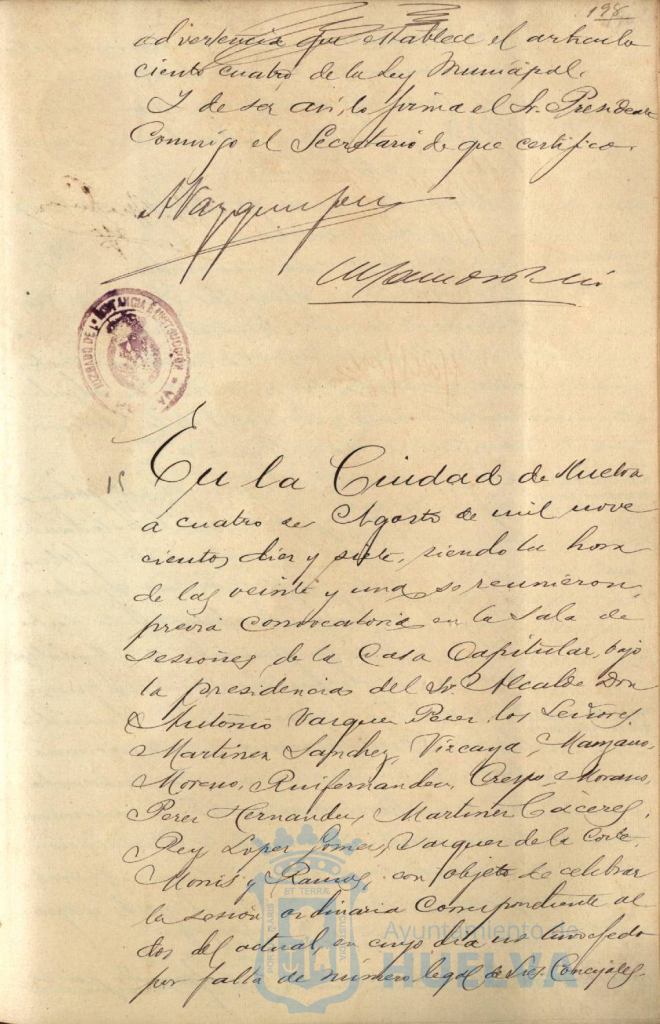 198
advertencia que establece el artículo
ciento cuatro de la Ley Municipal.
Y de ser así, lo firma el Sr. Presidente
Conmigo el Secretario de que certifico.
AVazquez Perez
JUZGADO DE 1ª INSTANCIA E INSTRUCCIÓN
15
En la Ciudad de Huelva
a cuatro de Agosto de mil nove
cientos diez y siete, siendo la hora
de las veinte y una se reunieron,
previa convocatoria en la Sala de
Sesiones de la Casa Capitular, bajo
la presidencia del Sr. Alcalde Don
Antonio Vazquez Perez, los Señores,
Martinez Sanchez, Vizcaya, Manzano,
Moreno, Ruifernandez, Crespo, Morano,
Perez Hernandez, Martinez Cáceres,
Rey, Lopez Gomez, Vazquez de la Corte,
Monis y Ramos, con objeto de celebrar
la sesión ordinaria correspondiente al
dos del actual, en cuyo dia no tuvo efecto
por falta de número legal de Sres. Concejales.
Ayuntamiento de
HUELVA